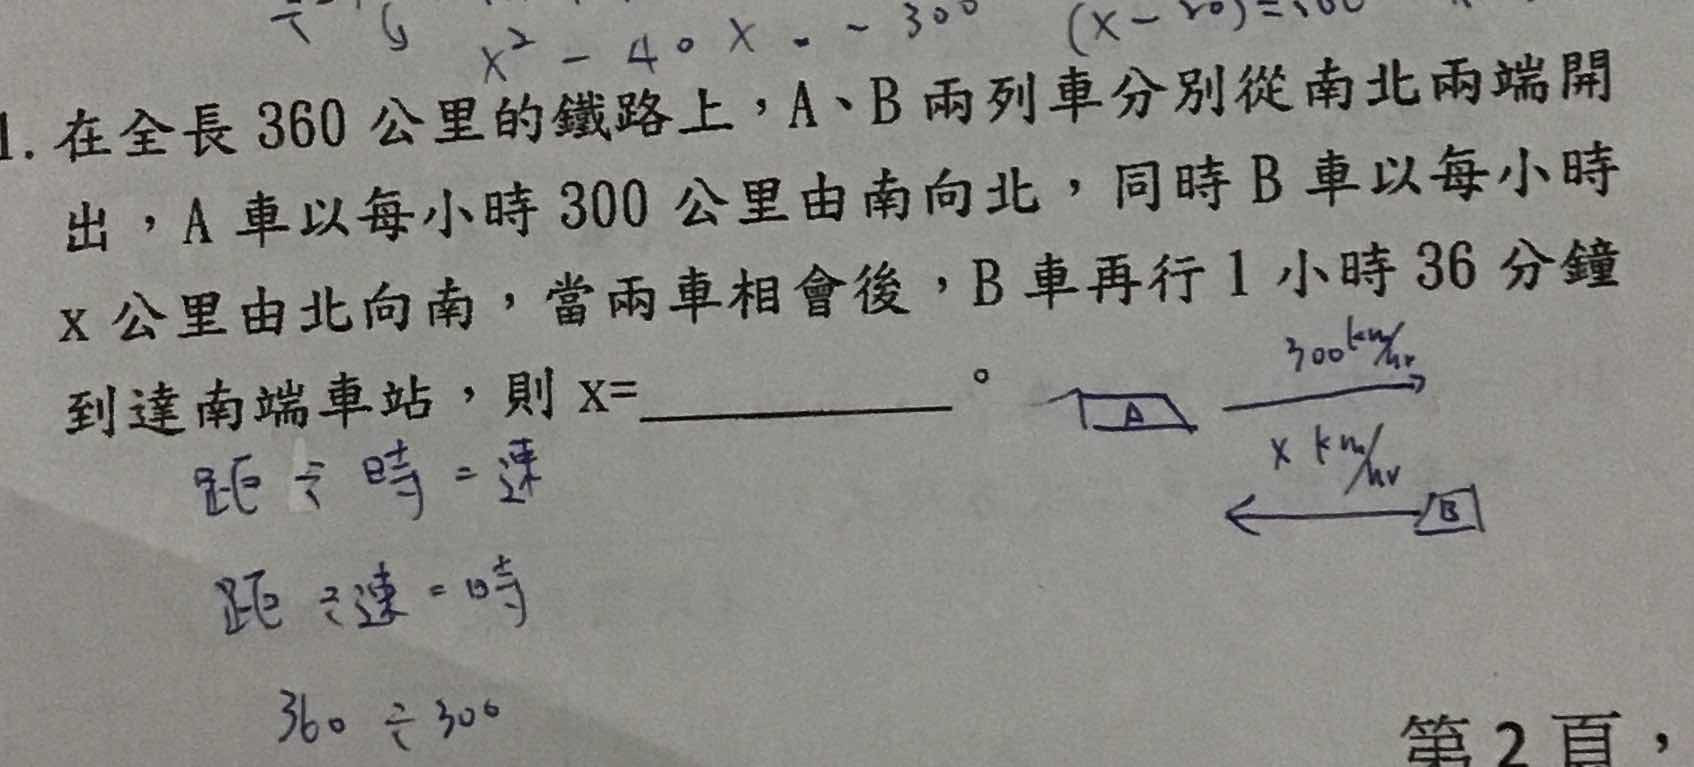 x² - 40x - 300 (x-20)=
1. 在全長 360 公里的鐵路上，A、B 兩列車分別從南北兩端開
出，A 車以每小時 300 公里由南向北，同時 B 車以每小時
x 公里由北向南，當兩車相會後，B 車再行 1 小時 36 分鐘
到達南端車站，則 x=＿＿＿＿＿。
300 km/hr
A
x km/hr
B
距 ÷ 時 = 速
距 ÷ 速 = 時
360 ÷ 300
第 2 頁，